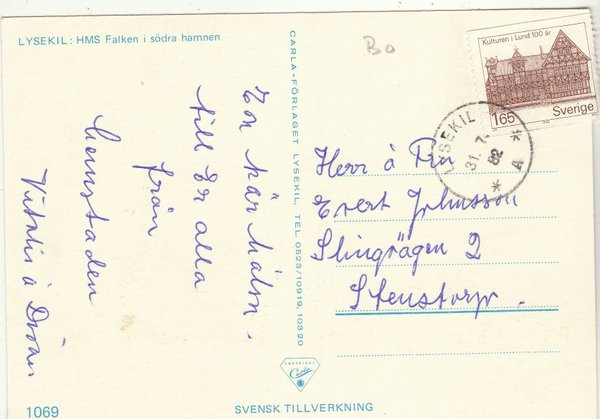 LYSEKIL: HMS Falken i södra hamnen
Bo
Kulturen i Lund 100 år
165 Sverige
LYSEKIL
31. 7. 82
* A *
En kär hälsn.
till Er alla
från
hemstaden
CARLA-FÖRLAGET LYSEKIL. TEL. 0523/10919, 10320
Herr å Fru
Evert Johnsson
Slingvägen 2
Stenstorp.
COPYRIGHT
Carla
1069
SVENSK TILLVERKNING